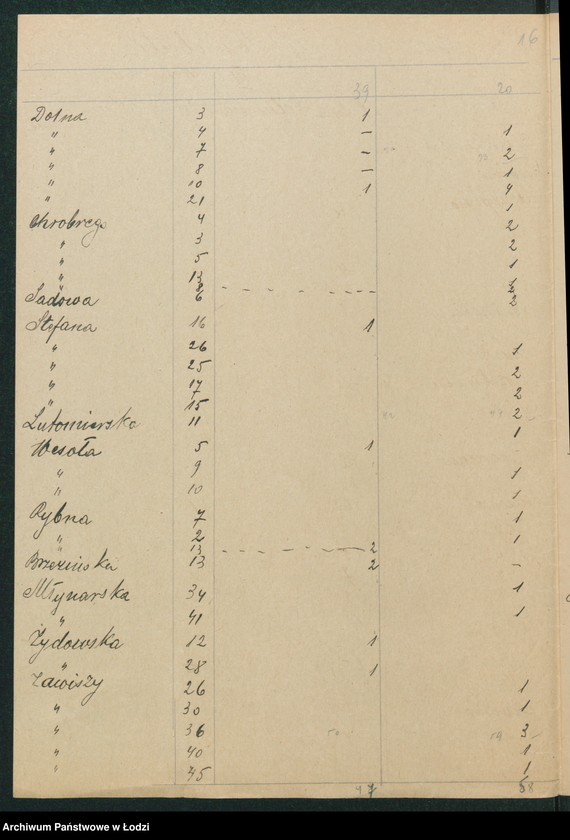 16
39 20
Dolna 3 1
" 4 – 1
" 7 – 2
" 8 – 1
" 10 1 4
" 21 1
Chrobrego 4 2
" 3 2
" 5 1
" 13
" 8
Sadowa 6 2
Stefana 16 1
" 26 1
" 25 2
" 17 2
" 15 2
Lutomierska 11 1
Wesoła 5 1
" 9 1
" 10 1
Rybna 7 1
" 2 1
" 13 2
Brzezińska 13 2 –
Młynarska 34 1
" 41 1
Żydowska 12 1
" 28 1
Zawiszy 26 1
" 30 1
" 36 3
" 40 1
" 45 1
47 58
Archiwum Państwowe w Łodzi